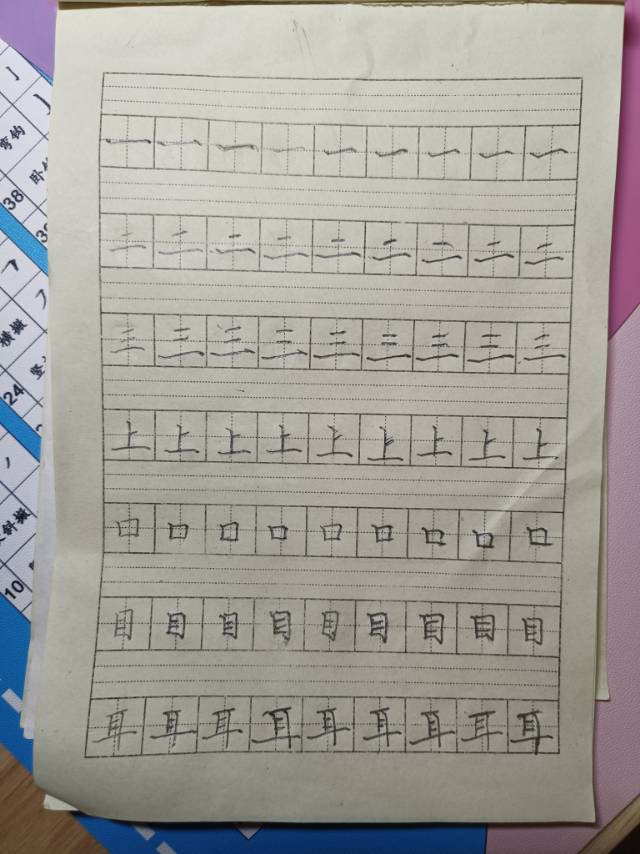 一 一 一 一 一 一 一 一 一
二 二 二 二 二 二 二 二 二
三 三 三 三 三 三 三 三 三
上 上 上 上 上 上 上 上 上
口 口 口 口 口 口 口 口 口
目 目 目 目 目 目 目 目 目
耳 耳 耳 耳 耳 耳 耳 耳 耳
弯钩
38
24
10